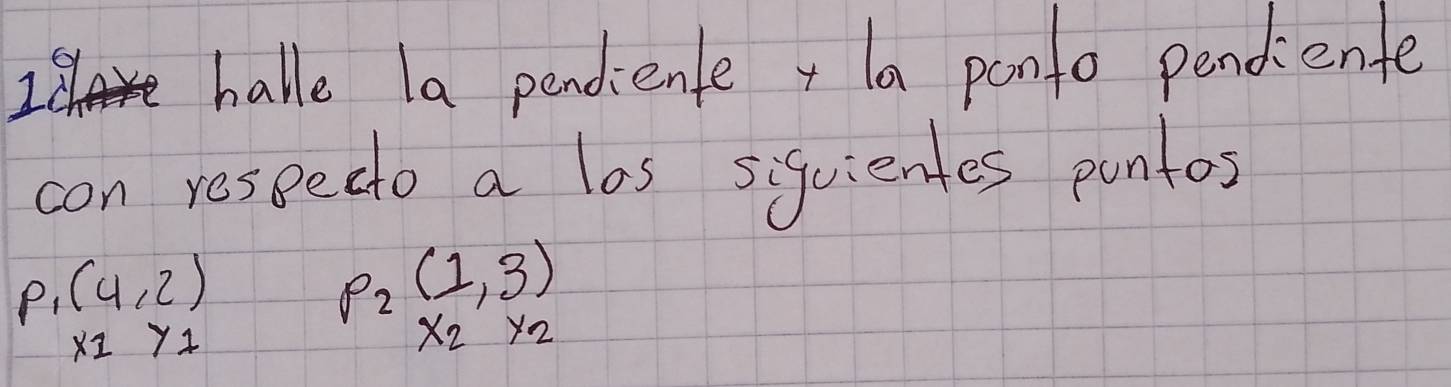 1º halle la pendiente y la ponto pendiente
con respecto a los siguientes puntos
P₁(4,2) P₂(1,3)
x1 y1 x2 y2